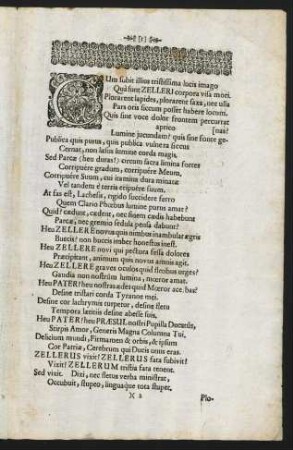 [1]
CUm subit illius tristissima lucis imago
Quâ sunt ZELLERI corpora visa mori.
Plorarent lapides, plorarent saxa, nec ulla
Pars oris siccum posset habere locum.
Quis sine voce dolor frontem percurrat
aprico [nas?
Lumine jucundam? quis sine fonte ge-
Publica quis purus, quis publica vulnera siccus
Cernat, non lasus lumine corda magis.
Sed Parcæ (heu duras!) circum sacra limina fortes
Corripuêre gradum, corripuêre Meum,
Corripuêre Suum, cui itamina dura minatæ
Vel tandem è terris eripuêre suum.
At fas est, Lachesis, rigido succidere ferro
Quem Clario Phœbus lumine purus amat?
Quid? cedunt, cadent, nec fuaem cadis habebunt
Parcæ, nec gremio sedula pensa dabunt?
Heu ZELLERE novus quis nimbus inambulat ægris
Buccis? non buccis imber honestus inest.
Heu ZELLERE novi qui pectura folla dolores
Præcipitant, animum quis novus annis agit.
Heu ZELLERE graves oculos quid flentibus urges?
Gaudia non nostrum lumina, mœror amat.
Heu PATER! heu nostras ædes quid Mœror ace. bas?
Desine tristari corda Tyranne mei.
Desine cor lachrymis turpetur, desine fletu
Tempora lætitiis desine abesse suis.
Heu PATER! heu PRÆSUL nostri Pupilla Ducatûs,
Stirps Amor, Generis Magna Columna Tui,
Delicium mundi, Firmamen & orbis, & ipsum
Cor Patriæ, Cerebrum qui Ducis unus eras.
ZELLERUS vixit! ZELLERUS fata subivit!
Vixit! ZELLERUM tristia fata tenent.
Sed vixit. Dixi, nec fletus verba ministrat,
Occubuit, stupeo, linguaque tota stupet.
X 2
Plo-